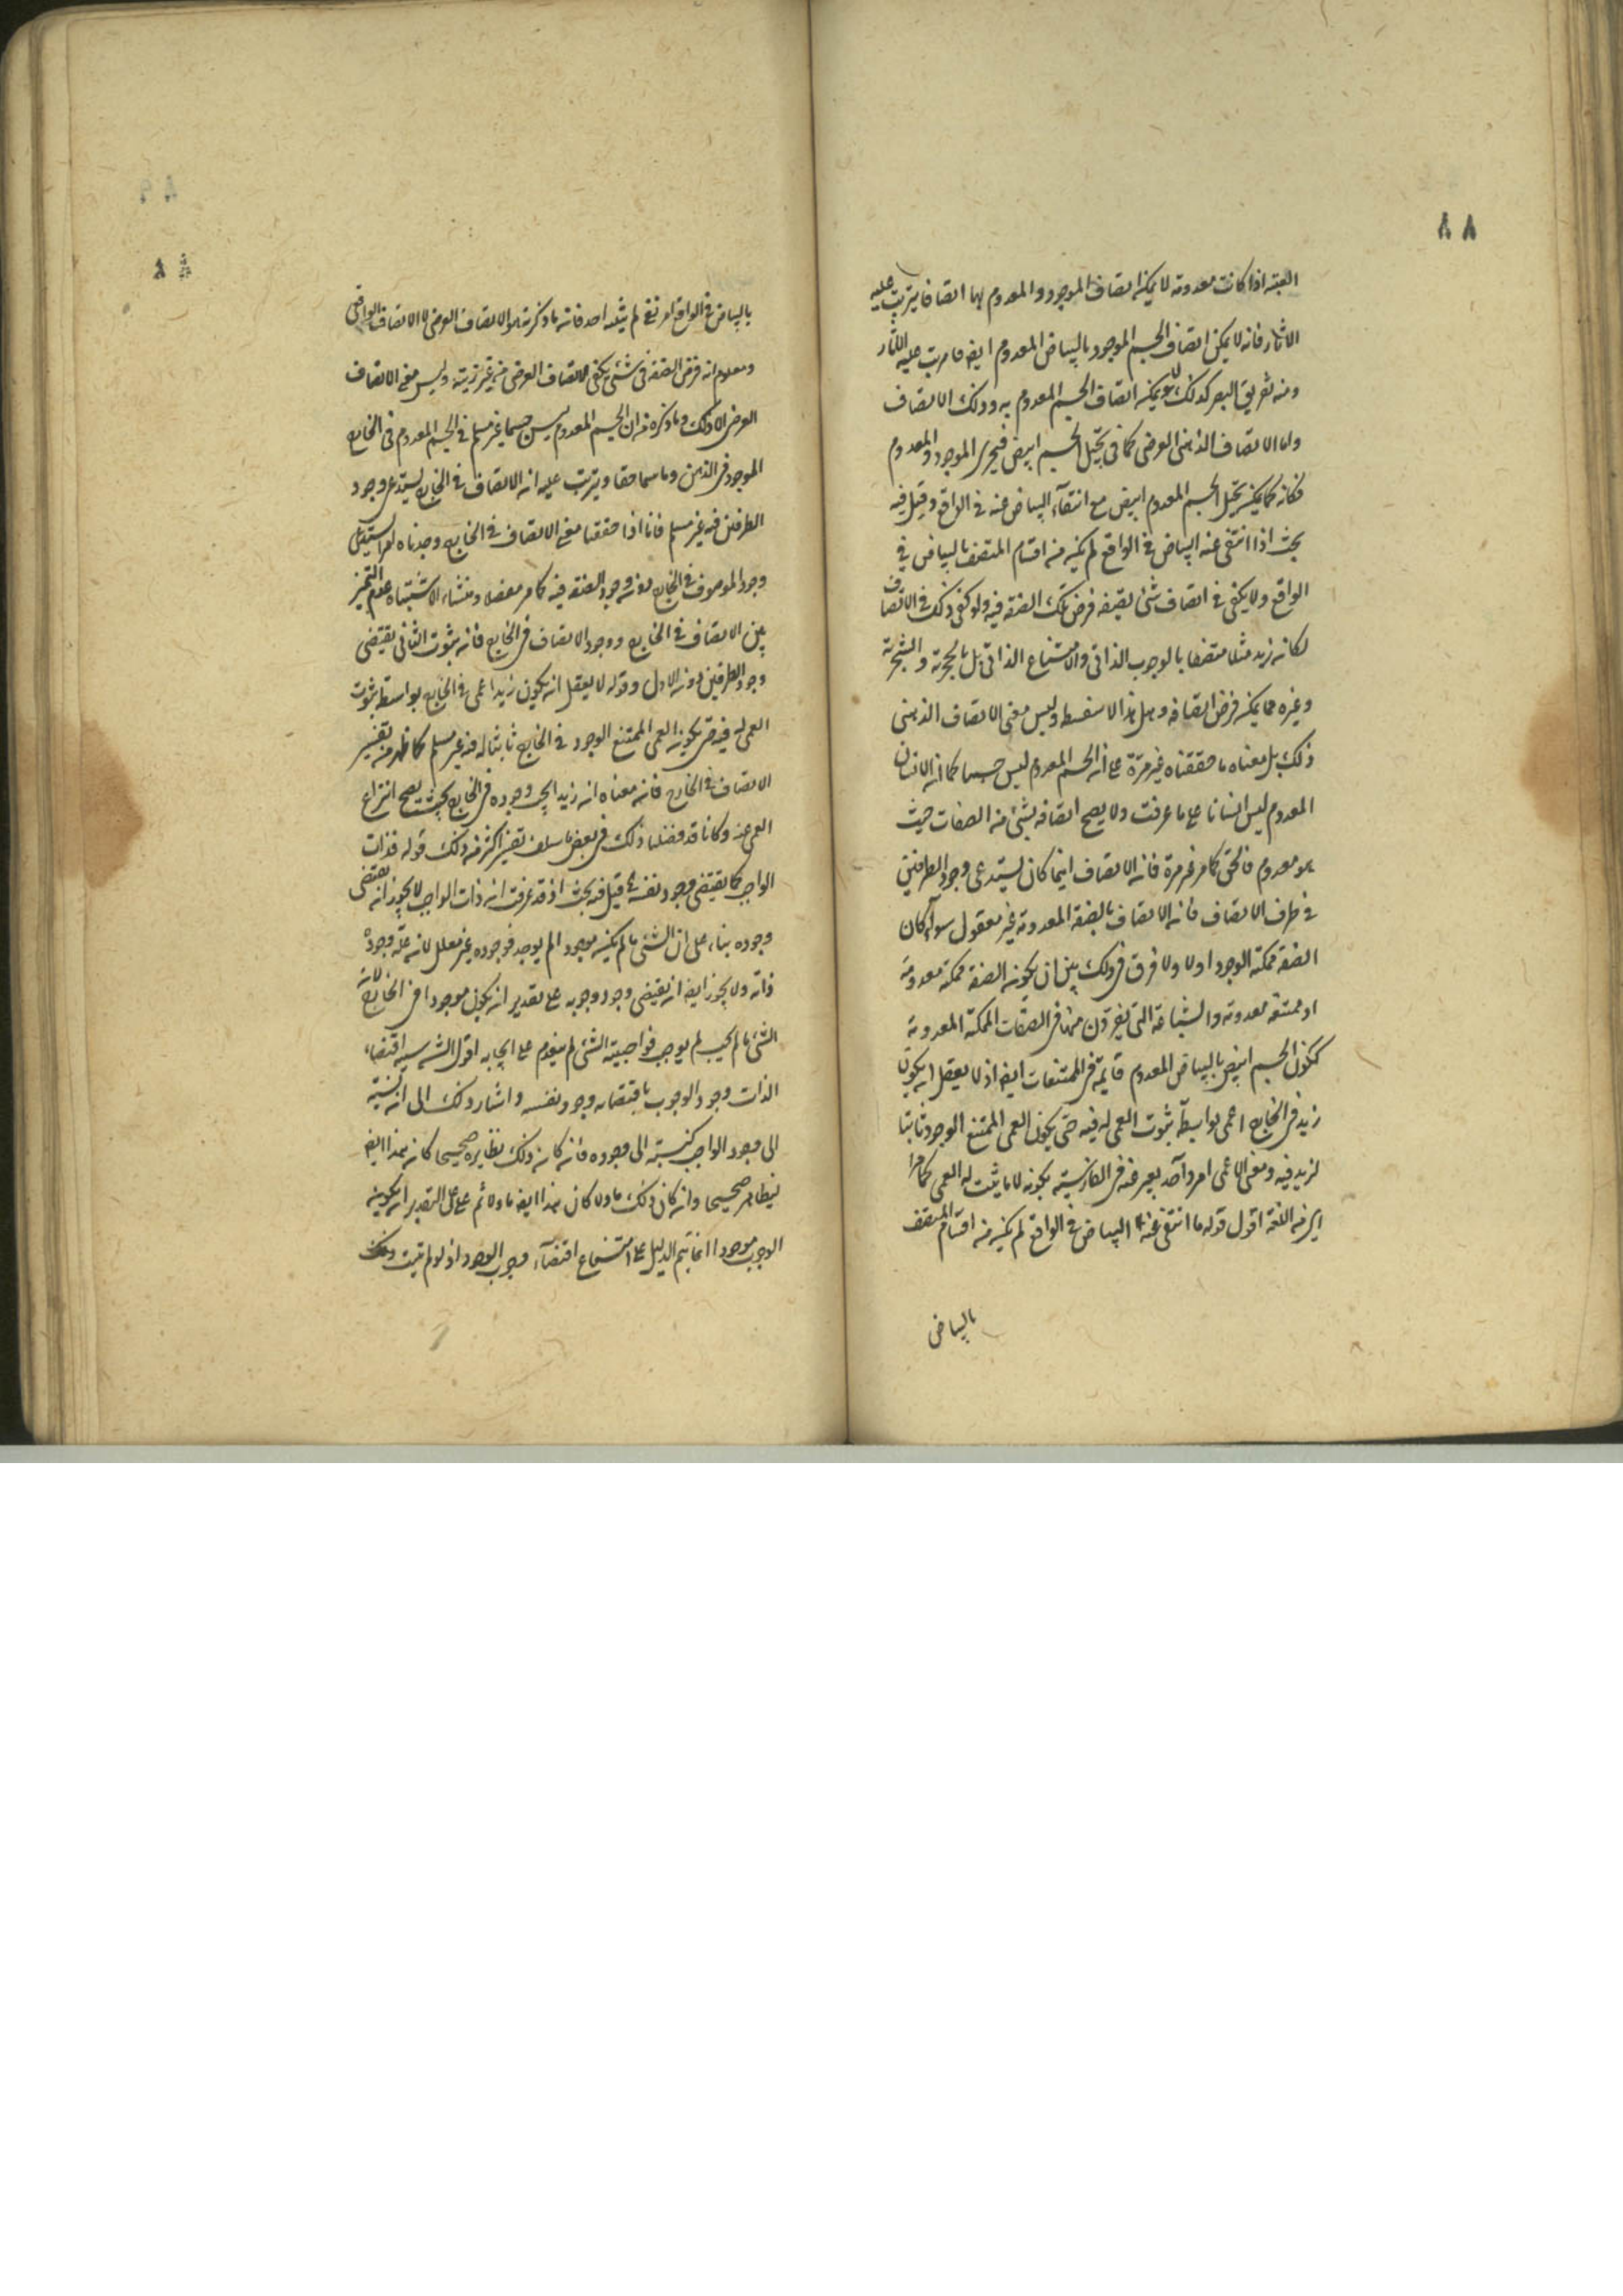 ٨٨
اذا كانت معدومة لا يمكن اتصاف الموجود والمعدوم بها اتصافا يترتب عليه
الاثار فانه لا يمكن اتصاف الجسم الموجود بالبياض المعدوم ايضا عليه الاثار
تفريق البصر كذلك لا يمكن اتصاف الجسم المعدوم به وذلك الاتصاف
واما الاتصاف الذهنى الفرضى كما فى تخيل الجسم ابيض فيجرى الموجود والمعدوم
فكانه كما يمكن تخيل الجسم المعدوم ابيض مع انتفاء البياض عنه فى الواقع وقيل فيه
بحث اذا انتفى عنه البياض فى الواقع لم يكن من اقسام المتصف بالبياض فى
الواقع ولا يكفى فى اتصاف شئ بصفة فرض تلك الصفة فيه ولو كفى ذلك فى الاتصاف
لكان زيد مثلا متصفا بالوجوب الذاتى والامتناع الذاتى بل بالحجرية والشجرية
وغيره مما يمكن فرض اتصافه وهل هذا الا سفسطة وليس معنى الاتصاف الذهنى
ذلك بل معناه ما حققناه غير مرة على ان الجسم المعدوم ليس جسما كما ان الانسان
المعدوم ليس انسانا على ما عرفت ولا يصح اتصافه بشئ من الصفات حيث
هو معدوم فالحق كما مر غير مرة فان الاتصاف اينما كان يستدعى وجود الطرفين
فى ظرف الاتصاف فان الاتصاف بالصفة المعدومة غير معقول سواء كان
الصفة ممكنة الوجود اولا ولا فرق فى ذلك بين ان يكون الصفة ممكنة معدومة
او ممتنعة معدومة والشناعة التى يفرون منها فى الصفات الممكنة المعدومة
ككون الجسم ابيض بالبياض المعدوم قايمة فى الممتنعات ايضا اذ لا يعقل ان يكون
زيد فى الخارج اعمى بواسطة ثبوت العمى له فيه حتى يكون العمى الممتنع الوجود ثابتا
لزيد فيه ومعنى الاعمى امر واحد يعبر عنه فى الفارسية بكونه لا ما يثبت له العمى كما مر
اللغة اقول قوله ما انتفى عنه البياض فى الواقع لم يكن من اقسام المتصف
بالبياض
بالبياض فى الواقع امر لم احد فانه ما ذكرته هو الاتصاف الفرضى لا الاتصاف الواقعى
ومعلوم ان فرض الصفة فى شئ يكفى للاتصاف الفرضى من غير وليس معنى الاتصاف
الفرضى الا ذلك وما ذكره من ان الجسم المعدوم ليس جسما غير مسلم فى الجسم المعدوم فى الخارج
الموجود فى الذهن ويترتب عليه ان الاتصاف فى الخارج يستدعى وجود
الطرفين فيه غير مسلم فانا اذا حققنا معنى الاتصاف فى الخارج وجدناه
وجود الموصوف فى الخارج دون وجود الصفة فيه كما مر مفصلا ومنشاء الاشتباه عدم التميز
بين الاتصاف فى الخارج ووجود الاتصاف فى الخارج فانه ثبوت الثانى يقتضى
وجود الطرفين دون الاول وقوله لا يعقل ان يكون زيد اعمى فى الخارج بواسطة ثبوت
العمى له فيه حتى يكون العمى الممتنع الوجود فى الخارج ثابتا له فيه غير مسلم كما ظهر من تفسير
الاتصاف فى الخارج فانه معناه ان زيدا وجوده فى الخارج بحيث يصح انتزاع
العمى عنه وكانا قد فصلنا ذلك فى بعض ما سلف اكثر من ذلك قوله فذات
الواجب كما يقتضى وجود نفسه قيل فيه بحث اذ قد عرفت ان ذات الواجب لا يجوز ان يقتضى
وجوده بناء على ان الشئ ما لم يكن موجودا لم يوجد فوجوده غير معلل لانه علة وجوده
ذاته ولا يجوز ايضا ان يقتضى وجود وجوبه على تقدير ان يكون موجودا فى الخارج لان
الشئ ما لم يجب لم يوجب فواجبية الشئ لم يتقدم على ايجابه اقول اقتضاء
الذات وجود الوجوب باقتضائه وجود نفسه واشار ذلك الى ان نسبته
الى وجود الواجب كنسبته الى وجوده فانه كان ذلك بظاهره صحيحا كان هذا ايضا
بظاهره صحيحا وان كان ذلك ماولا كان هذا ايضا ماولا ثم على التقدير ان يكون
الوجوب موجودا انما يتم الدليل على امتناع اقتضاء وجوب الوجود اذ لو لم يثبت ذلك